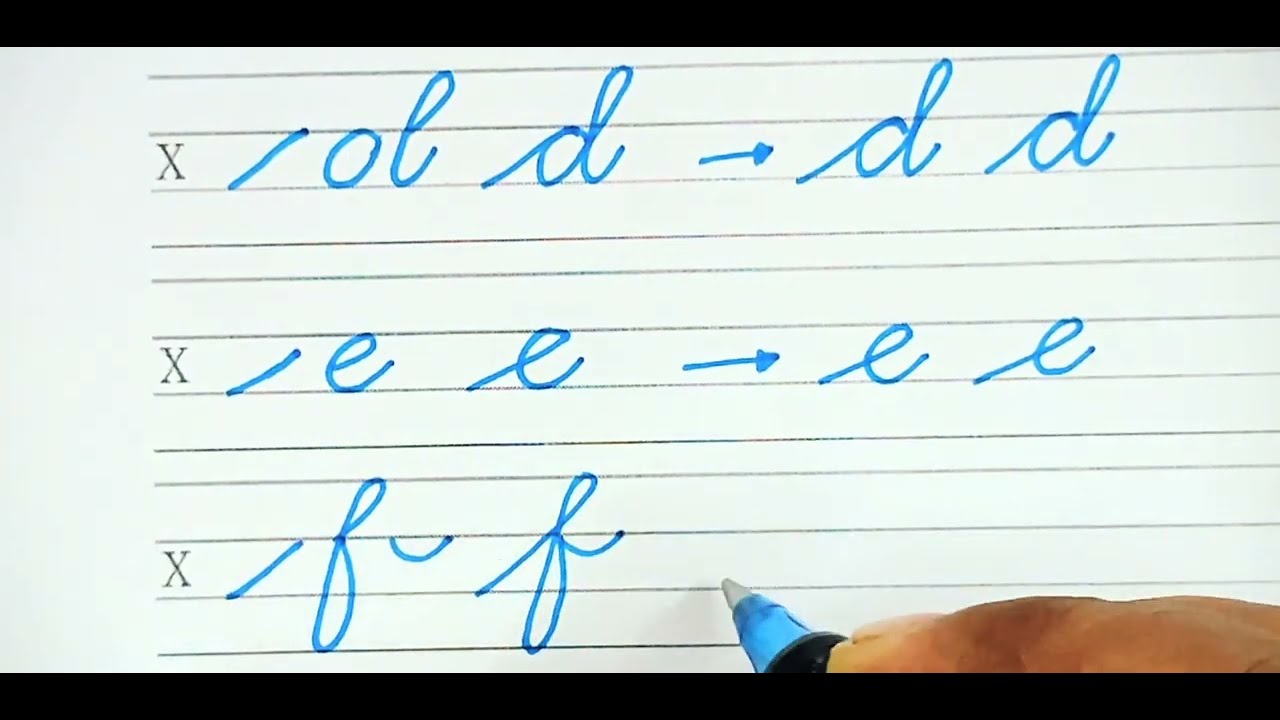 X / o l d → d d
X / e e → e e
X / f ⌣ f